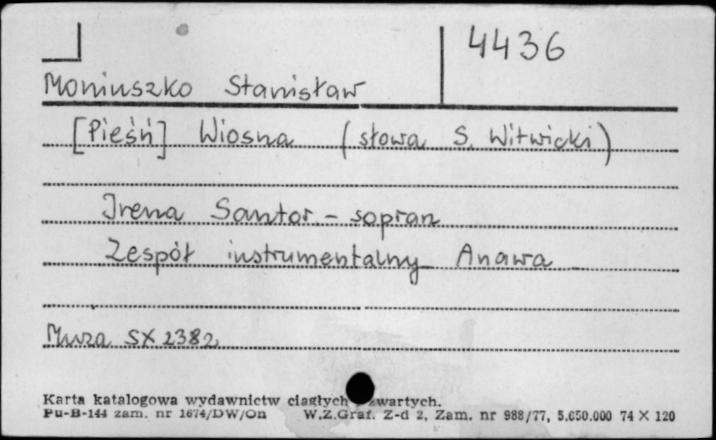 4436
Moniuszko Stanisław
[Pieśń] Wiosna (słowa S. Witwicki)
Irena Santor - sopran
Zespół instrumentalny Anawa
Muza SX 2382
Karta katalogowa wydawnictw ciągłych zwartych.
Pu-B-144 zam. nr 1674/DW/On W.Z.Graf. Z-d 2, Zam. nr 988/77, 5.650.000 74 X 120